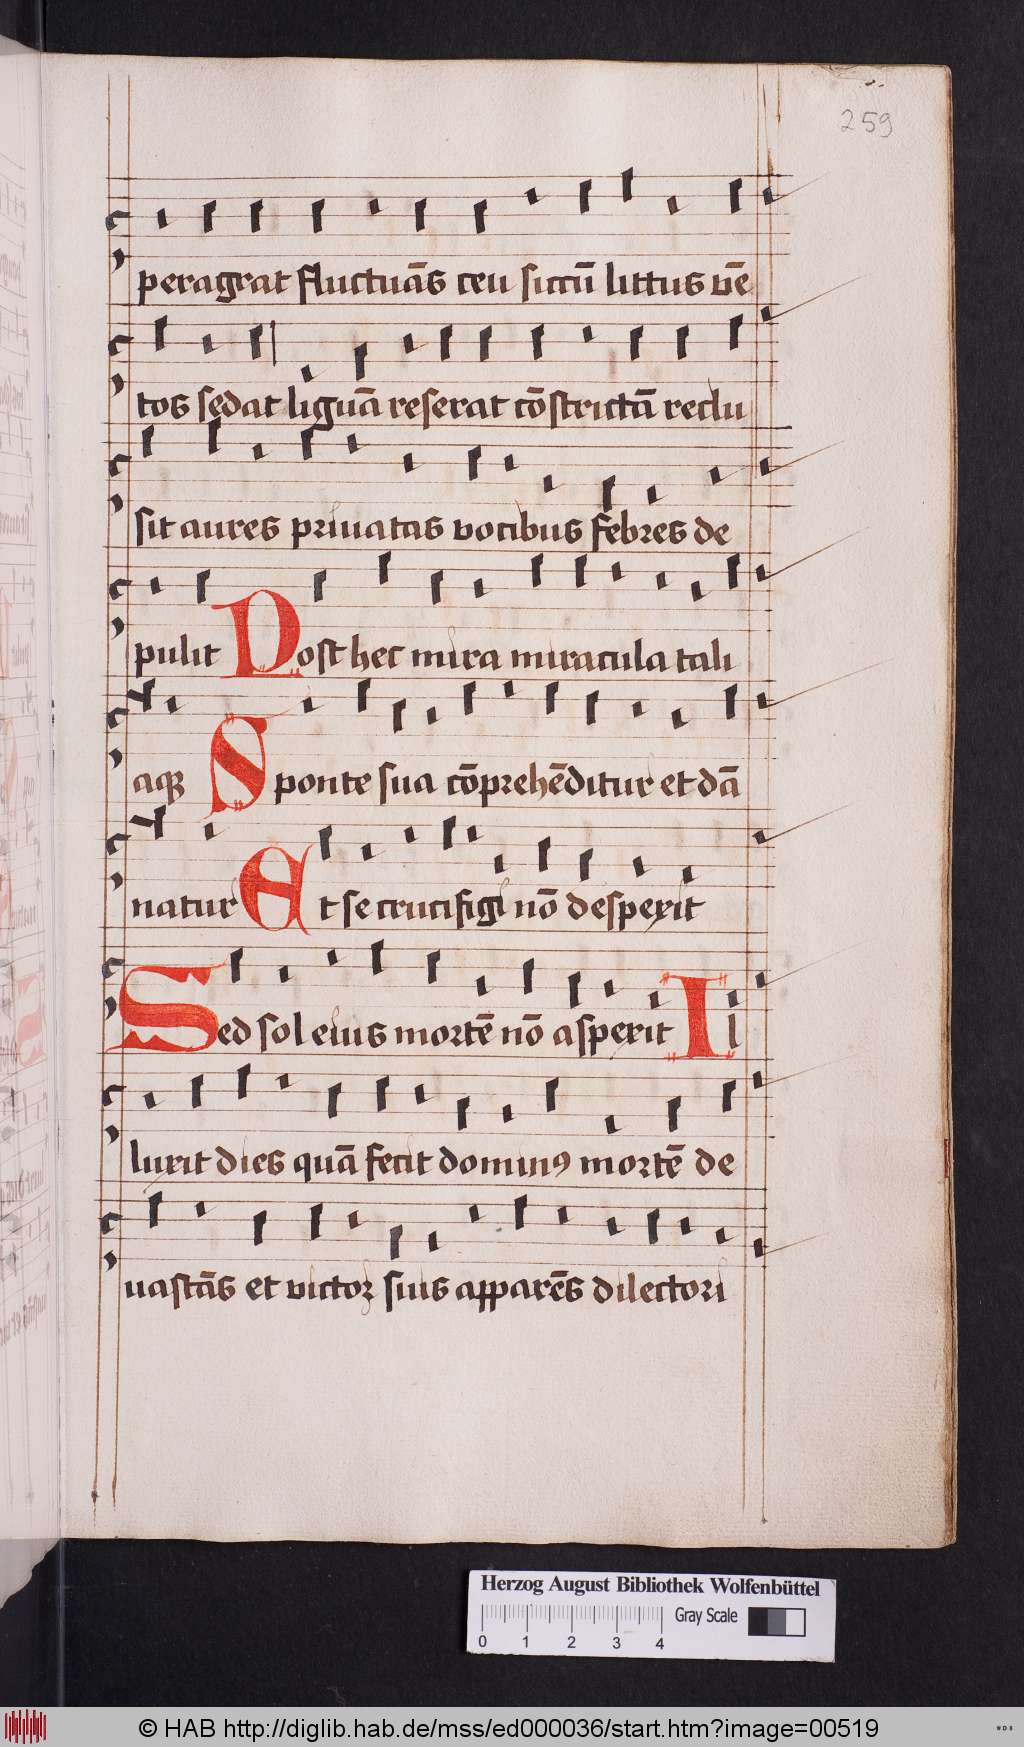 259
peragrat fluctuās ceu siccū littus vē
tos sedat liguā reserat cōstrictā reclu
sit aures priuatas vocibus febres de
pulit Post hec mira miracula tali
aqꝫ Sponte sua cōprehēditur et dā
natur Et se crucifigi nō despexit
Sed sol eius mortē nō aspexit Il
luxit dies quā fecit dominꝰ mortē de
uastās et victor siıus apparēs dilectori
Herzog August Bibliothek Wolfenbüttel
0 1 2 3 4
Gray Scale
© HAB http://diglib.hab.de/mss/ed000036/start.htm?image=00519